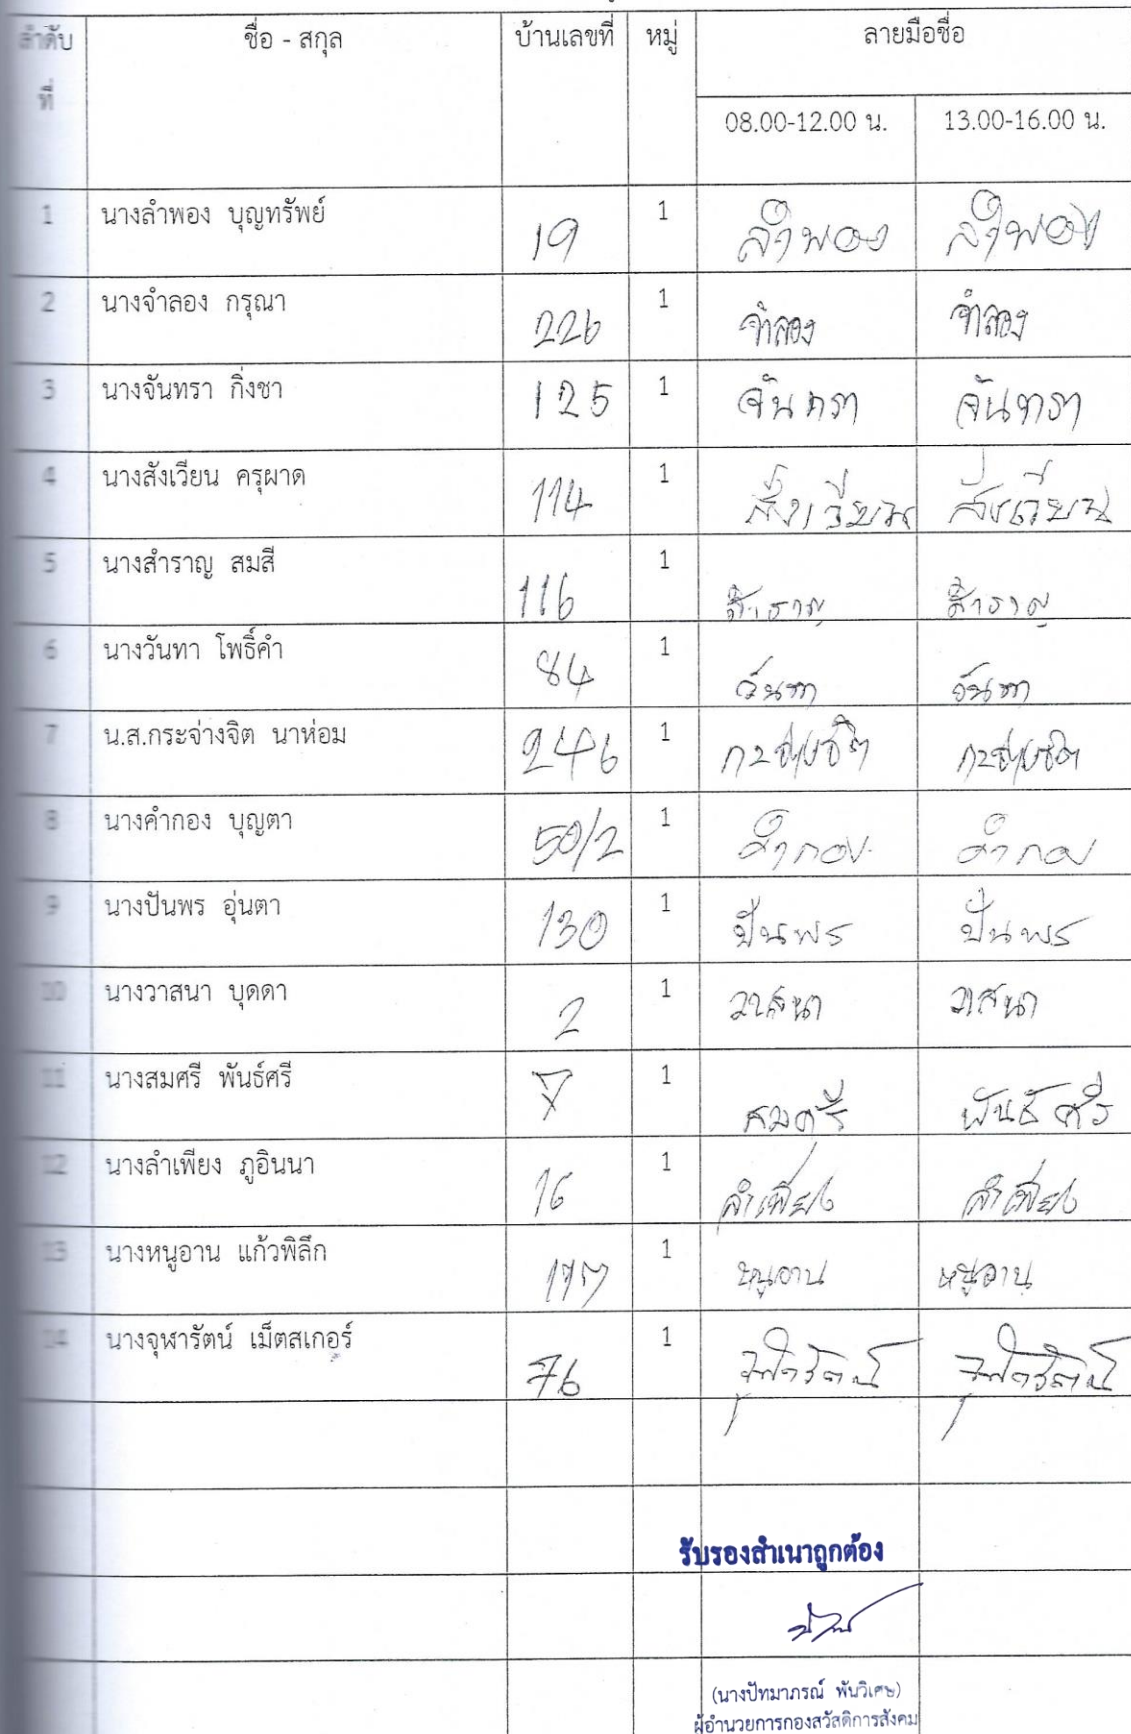 ลำดับ ชื่อ - สกุล บ้านเลขที่ หมู่ ลายมือชื่อ
ที่
08.00-12.00 น. 13.00-16.00 น.
1 นางลำพอง บุญทรัพย์ 19 1 ลำพอง ลำพอง
2 นางจำลอง กรุณา 226 1 จำลอง จำลอง
3 นางจันทรา กิ่งชา 125 1 จันทรา จันทรา
4 นางสังเวียน ครุผาด 114 1 สังเวียน สังเวียน
5 นางสำราญ สมสี 116 1 สำราญ สำราญ
6 นางวันทา โพธิ์คำ 84 1 วันทา วันทา
7 น.ส.กระจ่างจิต นาห่อม 246 1
8 นางคำกอง บุญตา 50/2 1 คำกอง คำกอง
9 นางปันพร อุ่นตา 130 1 ปันพร ปันพร
10 นางวาสนา บุดดา 2 1 วาสนา วาสนา
11 นางสมศรี พันธ์ศรี 1 สมศรี พันธ์ศรี
12 นางลำเพียง ภูอินนา 16 1 ลำเพียง ลำเพียง
13 นางหนูอาน แก้วพิลึก 1 หนูอาน หนูอาน
14 นางจุฬารัตน์ เม็ตสเกอร์ 76 1 จุฬารัตน์ จุฬารัตน์
รับรองสำเนาถูกต้อง
(นางปัทมาภรณ์ พันวิเศษ)
ผู้อำนวยการกองสวัสดิการสังคม